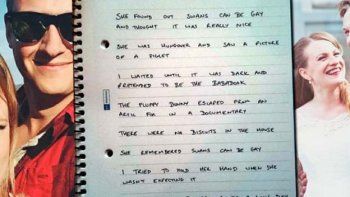 SHE FOUND OUT SWANS CAN BE GAY
AND THOUGHT IT WAS REALLY NICE
SHE WAS HUNGOVER AND SAW A PICTURE
OF A PIGLET
I WAITED UNTIL IT WAS DARK AND
PRETENDED TO BE THE BABADOOK
THE FLUFFY BUNNY ESCAPED FROM AN
ARCTIC FOX IN A DOCUMENTARY
THERE WERE NO BISCUITS IN THE HOUSE
SHE REMEMBERED SWANS CAN BE GAY
I TRIED TO HOLD HER HAND WHEN SHE
WASN'T EXPECTING IT